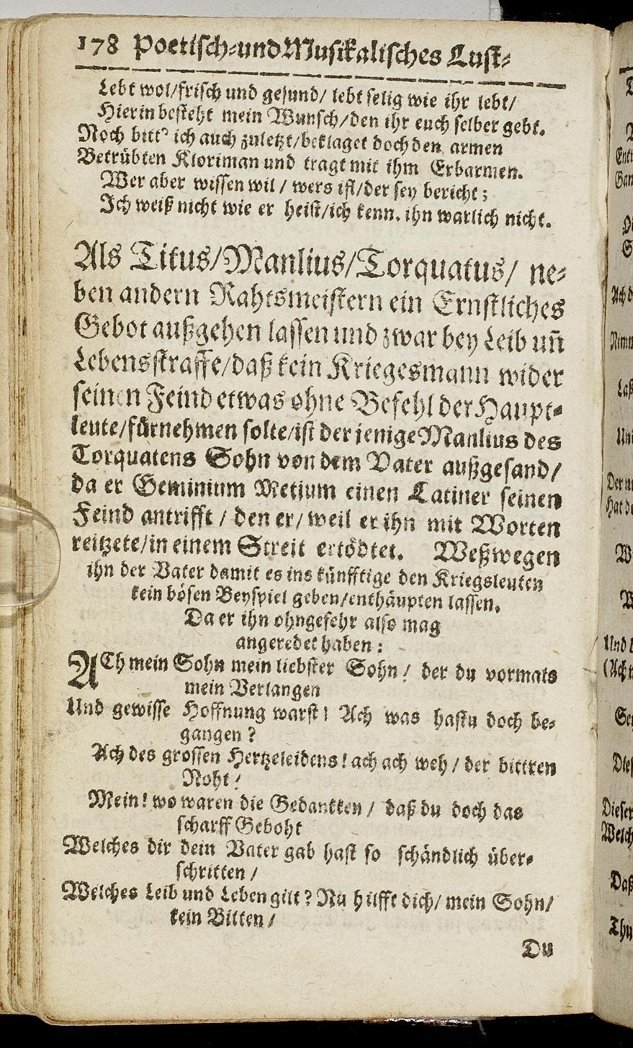 178 Poetisch-und Musikalisches Lust-
Lebt wol/frisch und gesund/ lebt selig wie ihr lebt/
Hierin besteht mein Wunsch/den ihr euch selber gebt.
Noch bitt' ich auch zuletzt/beklaget doch den armen
Betrübten Kloriman und tragt mit ihm Erbarmen.
Wer aber wissen wil/ wers ist/der sey bericht;
Ich weiß nicht wie er heist/ich kenn. ihn warlich nicht.
Als Titus/Manlius/Torquatus/ ne-
ben andern Rahtsmeistern ein Ernstliches
Gebot außgehen lassen und zwar bey Leib uñ
Lebensstraffe/daß kein Kriegesmann wider
seinen Feind etwas ohne Befehl der Haupt-
leute/fürnehmen solte/ist der jenige Manlius des
Torquatens Sohn von dem Vater außgesand/
da er Geminium Metium einen Latiner seinen
Feind antrifft/ den er/ weil er ihn mit Worten
reitzete/in einem Streit ertödtet. Weßwegen
ihn der Vater damit es ins künfftige den Kriegsleuten
kein bösen Beyspiel geben/enthäupten lassen.
Da er ihn ohngefehr also mag
angeredet haben:
ACh mein Sohn mein liebster Sohn/ der du vormals
mein Verlangen
Und gewisse Hoffnung warst! Ach was hastu doch be-
gangen?
Ach des grossen Hertzeleidens! ach ach weh/ der bittren
Noht!
Mein! wo waren die Gedancken/ daß du doch das
scharff Geboht
Welches dir dein Vater gab hast so schändlich über-
schritten/
Welches Leib und Leben gilt? Nu hilfft dich/ mein Sohn/
kein Bitten/
Du